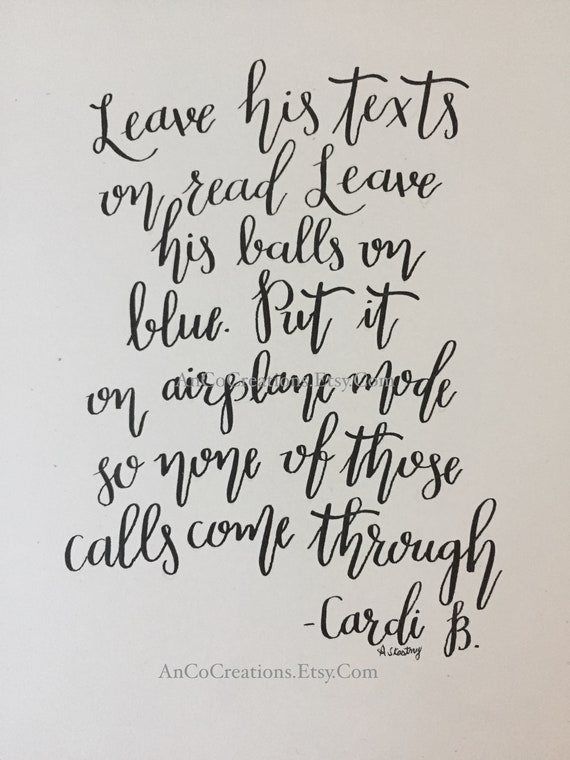 Leave his texts
on read Leave
his balls on
blue. Put it
AnCoCreations.Etsy.Com
on airplane mode
so none of those
calls come through
-Cardi B.
AnCoCreations.Etsy.Com